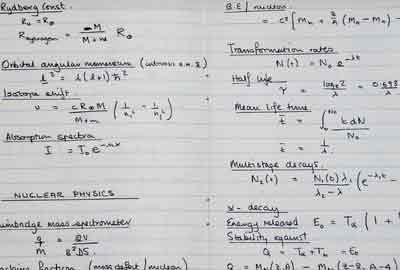 Rydberg Const.
R∞ = R∞
R_Hydrogen = ∞M / (M + m) R∞
Orbital angular momentum
l² = l(l+1)ħ²
Isotope shift
ν = cR∞M / (M+m) (1/n₁² − 1/n₂²)
Absorption spectra
I = I₀e
NUCLEAR PHYSICS
Bainbridge mass spectrometer
q/M = 2V / B²DS
fraction (mass defect / nucleon)
B.E / nucleon
= c² [Mn + Z/A (MH − Mn) −
Transformation rates
N(t) = N₀e^−λt
Half life
τ = loge2 / λ = 0.693
Mean life time
t̄ = ∫ t dN / N₀
t̄ = 1/λ
Multistage decays.
N₂(t) = N₁(0)λ₁ / (λ₂ − λ) (e^−λ₁t −
α - decay
Energy released E₀ = Tα (1 +
Stability against
Q = Tα + Tb = E₀
Q = M (Z,A) − M (Z-2, A-4)